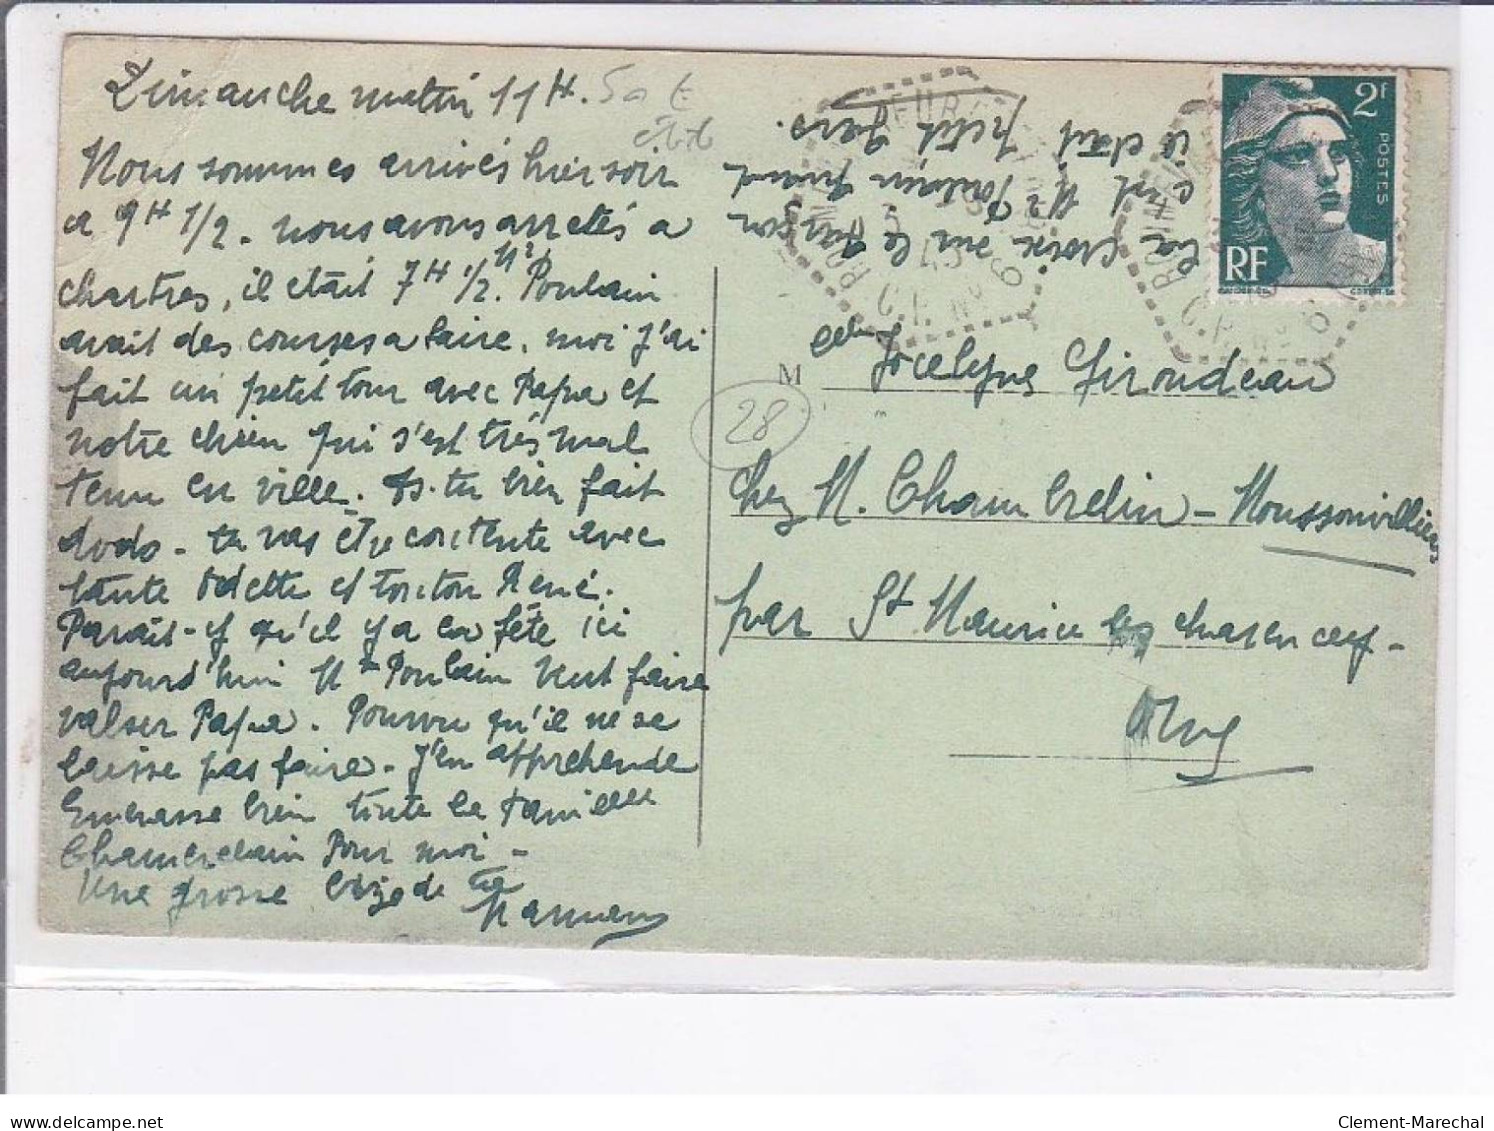 Dimanche matin 11H.
Nous sommes arrivés hier soir
a 9H 1/2. nous avons arretés a
chartres, il était 7H 1/2. Mr Poulain
avait des courses a faire, moi j'ai
fait un petit tour avec Papa et
notre chien qui s'est très mal
tenu en ville. As-tu bien fait
dodo - tu vas être contente avec
tante Odette et tonton René.
Parait-y qu'il y a la fête ici
aujourd'hui Mme Poulain veut faire
valser Papa. Pourvu qu'il ne se
laisse pas faire - j'en apprehende
Embrasse bien toute la famille
Chamberlain Pour moi -
Une grosse bize de ta
Maman
La croix sur le garçon
c'est Mr Poulain quand
il était petit gars.
2F
POSTES
RF
C.P. No 6
M elle Jocelyne Girondeau
28
chez M. Chambrelin - Moussonvilliers
par St Maurice les charencey -
Orne
delcampe.net
Clement-Marechal